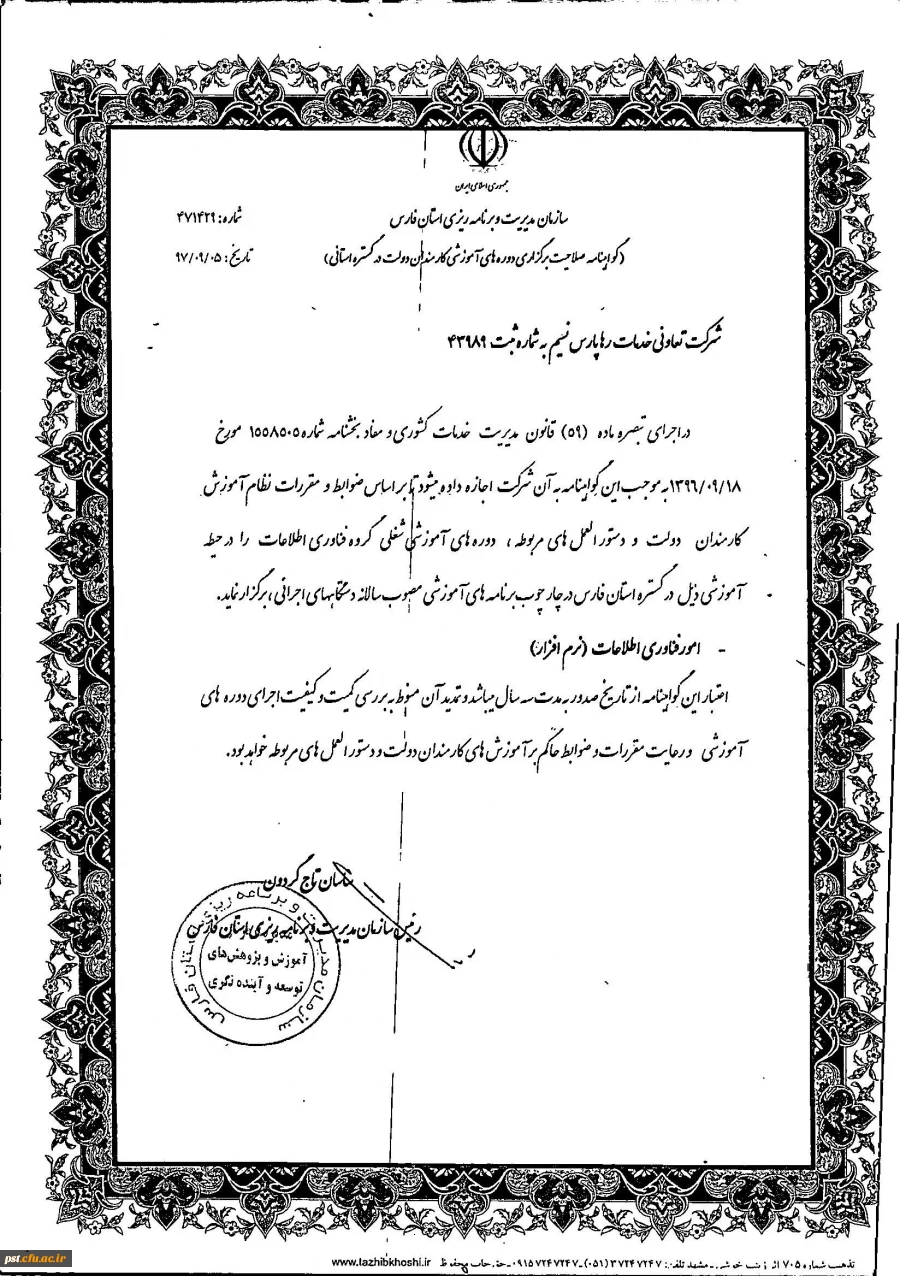 جمهوری اسلامی ایران
سازمان مدیریت و برنامه ریزی استان فارس
شماره: ۴۷۱۴۲۹
(گواهینامه صلاحیت برگزاری دوره های آموزشی کارمندان دولت در گستره استانی)
تاریخ: ۹۷/۰۹/۰۵
شرکت تعاونی خدمات رها پارس نسیم به شماره ثبت ۴۳۹۸۹
در اجرای تبصره ماده (۵۹) قانون مدیریت خدمات کشوری و مفاد بخشنامه شماره ۱۵۵۸۵۰۵ مورخ
۱۳۹۶/۰۹/۱۸ به موجب این گواهینامه به آن شرکت اجازه داده میشود تا بر اساس ضوابط و مقررات نظام آموزش
کارمندان دولت و دستور العمل های مربوطه ، دوره های آموزشی شغلی گروه فناوری اطلاعات را در حیطه
آموزشی ذیل در گستره استان فارس در چارچوب برنامه های آموزشی مصوب سالانه دستگاههای اجرائی ، برگزار نماید.
- امور فناوری اطلاعات (نرم افزار)
اعتبار این گواهینامه از تاریخ صدور به مدت سه سال میباشد و تمدید آن منوط به بررسی کمیت و کیفیت اجرای دوره های
آموزشی و رعایت مقررات و ضوابط حاکم بر آموزش های کارمندان دولت و دستور العمل های مربوطه خواهد بود.
ساسان تاج گردون
رئیس سازمان مدیریت و برنامه ریزی استان فارس
سازمان مدیریت و برنامه ریزی استان فارس
آموزش و پژوهش های
توسعه و آینده نگری
تذهیب شماره ۷۰۵ مشهد تلفن: ۳۷۲۴۷۲۴۷ (۰۵۱) - ۰۹۱۵۷۲۴۷۲۴۷ - حق چاپ محفوظ www.tazhibkhoshi.ir
pst.cfu.ac.ir